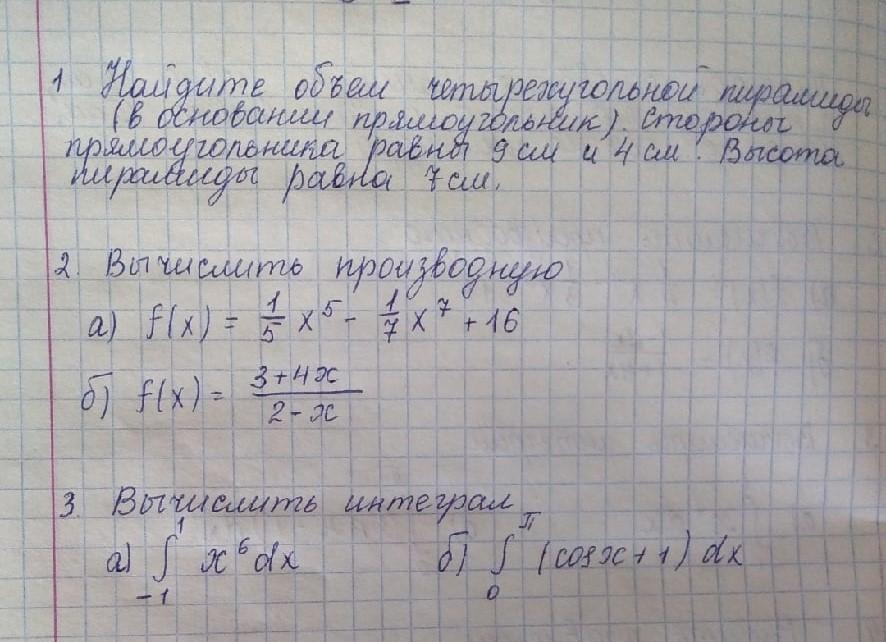 1 Найдите объем четырехугольной пирамиды
(в основании прямоугольник). Стороны
прямоугольника равны 9 см и 4 см. Высота
пирамиды равна 7 см.
2. Вычислить производную
а) f(x) = 1/5 x^5 - 1/7 x^7 + 16
б) f(x) = (3+4x)/(2-x)
3. Вычислить интеграл
а) ∫_{-1}^{1} x^6 dx б) ∫_{0}^{π} (cos x + 1) dx